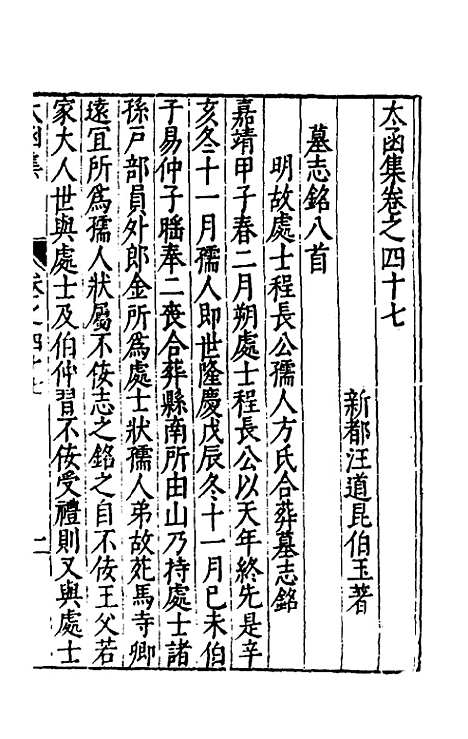 太函集卷之四十七
新都汪道昆伯玉著
墓志銘八首
明故處士程長公孺人方氏合葬墓志銘
嘉靖甲子春二月朔處士程長公以天年終先是辛
亥冬十一月孺人即世隆慶戊辰冬十一月已未伯
子易仲子暘奉二喪合葬縣南所由山乃持處士諸
孫戶部員外郎金所爲處士狀孺人弟故苑馬寺卿
遠宜所爲孺人狀屬不佞志之銘之自不佞王父若
家大人世與處士及伯仲習不佞受禮則又與處士
太函集
卷之四十七